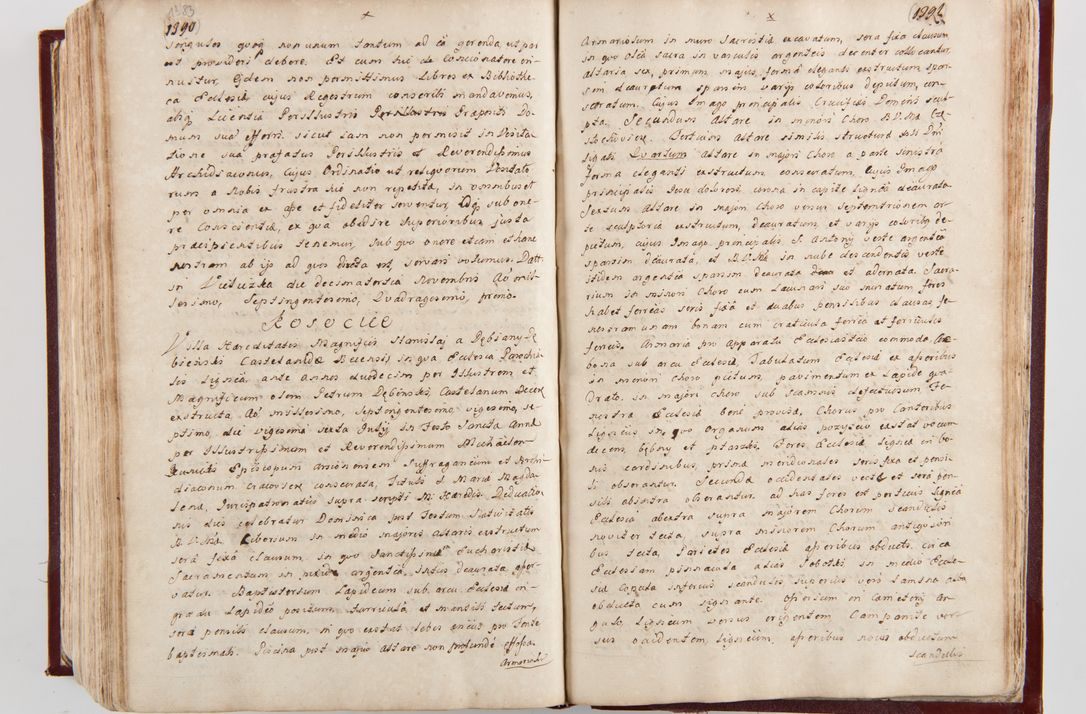 1390
singulos quoq non unum tantum ad ea gerenda ut par
est provideri debere. Et cum sic de Concionatore in-
nuitur, Eidem non permittimus Libros ex Bibliothe-
ca Ecclesiæ cujus Regestrum conscribi mandavimus,
absq Licentia Perillustris Præpositi Do-
mum suā efferri sicut iam non permisit in Visita
tione sua præfatus Perillustris et Reverendissimus
Archidiaconus, Cujus Ordinatio ut reliquorum Visitato
rum a Nobis frustra hic non repetitā, in omnibus et
per omnia ex ape et fideliter serventur, Idq sub one-
re Conscientiæ, ex qua obedire Superioribus justa
præcipientibus tenemur, sub quo onere etiam et hanc
nostram ab ijs ad quos directa est, servari volumus. Datt.
in die decimatertia Novembris Aō mil-
lesimo, Septingentesimo, Quadragesimo, primo.
Rosocice
Villa Hæreditatis Magnifici Stanislai a Dębiany Dę-
binski Castellanidæ in qua Ecclesia Parochia
lis Lignea ante Annos duodecim per Illustrem et
Magnificum olim Petrum Dębinski, Castelanum
exstructa Aō millesimo, Septingentesimo, vigesimo, se-
ptimo, die vigesima sexta Julij in Festo Sanctæ Annæ
per Illustrissimum et Reverendissimum Michaelem
Kunicki Episcopum Arsiensem Suffraganeum et Archi
diaconum Cracovien consecrata, Tituli S Mariæ Magda
lenæ, Jurispatronatus supra scripti M: Hæredis. Dedicatio
nis dies celebratur Dominica post Festum Nativitatis
B.V.Mæ Ciborium in medio majoris Altaris exstructum
serā fixā clausum, in quo Sanctissimū Eucharistiæ
Sacramentum in argentea, intus deaurata asser
vatur. Baptisterium Lapideum sub arcu Ecclesiæ in
gradu Lapideo positum, Turricula et mensili tectum,
serā pensili clausum, in quo existit lebes pro Fonte
baptismali. Piscina post majus Altare non profundè effossa.
Armariolū
1391
Armariolum in muro Sacristiæ excavatum, sera fixa clausum
in quo Olea sacra in vasculis argenteis decenter collocantur,
altaria sex, primum, majus, formā eleganti exstructum, spar
sim deauratum sparsim varijs coloribus depictum, con-
secratum. Cujus Imago principalis Crucifixi Domini scul-
pta. Secundum Altare in minori Choro B.V.Mæ Czę-
stochoviensis. Tertium Altare similis structuræ Jesu Do
ligati Quartum Altare in majori Choro a parte sinistra
forma eleganti exstructum consecratum, Cujus Imago
principalis Jesu dolorosi corona in capite lignea deaurata
Sextum Altare in majori Choro versus Septemtrionem ar
te sculptoria exstructum, deauratum, et varijs coloribus de-
pictum, cujus Imago principalis S. Antonij veste argentea
sparsim deaurata, et B.V.Mæ in nube descendentis veste
itidem argentea sparsim deaurata et adornata. Sacra-
rium in minori Choro cum Lacunari suo muratum fores
habet ferreas seris fixâ et duabus pensilibus clausas, fe
nestram unam bonam cum craticula ferrea et ferriculis
ferreis. Armaria pro Apparatu Ecclesiastico commoda.
sub arcu Ecclesiæ. Tabulatum Ecclesiæ ex asseribus
in minori Choro pictum, pavimentum ex Lapide qua
drato. in majori Choro sub scamnis defectuosum Fe-
nestræ Ecclesiæ bene provisæ, Chorus pro Cantoribus
Ligneus in quo Organum aliàs pozytyw extat vocum
decem, bębny et ptaszki. Fores Ecclesiæ ligneæ in bo
nis cardinibus, prima meridionales seris fixa et pensi
li obserantur. Secundæ occidentales vecte et serâ pen
sili absintra obserantur. ad has fores est porticus lignea
Ecclesiā abextra supra majorem Chorum scandulis
noviter tecta, supra minorem Chorum antiquiori
bus tecta, Parietes Ecclesiæ asseribus obducti, circa
Ecclesiam pinnacula alias Sobotki in medio Eccle-
siæ Copula inferius scandulis superius verò lamina alba
obducta cum signante. Ossorium in Cæmeterij An-
gulo, Ligneum versus orientem. Campanile ver-
sus occidentem, ligneum, asseribus novis obductum
scandulis